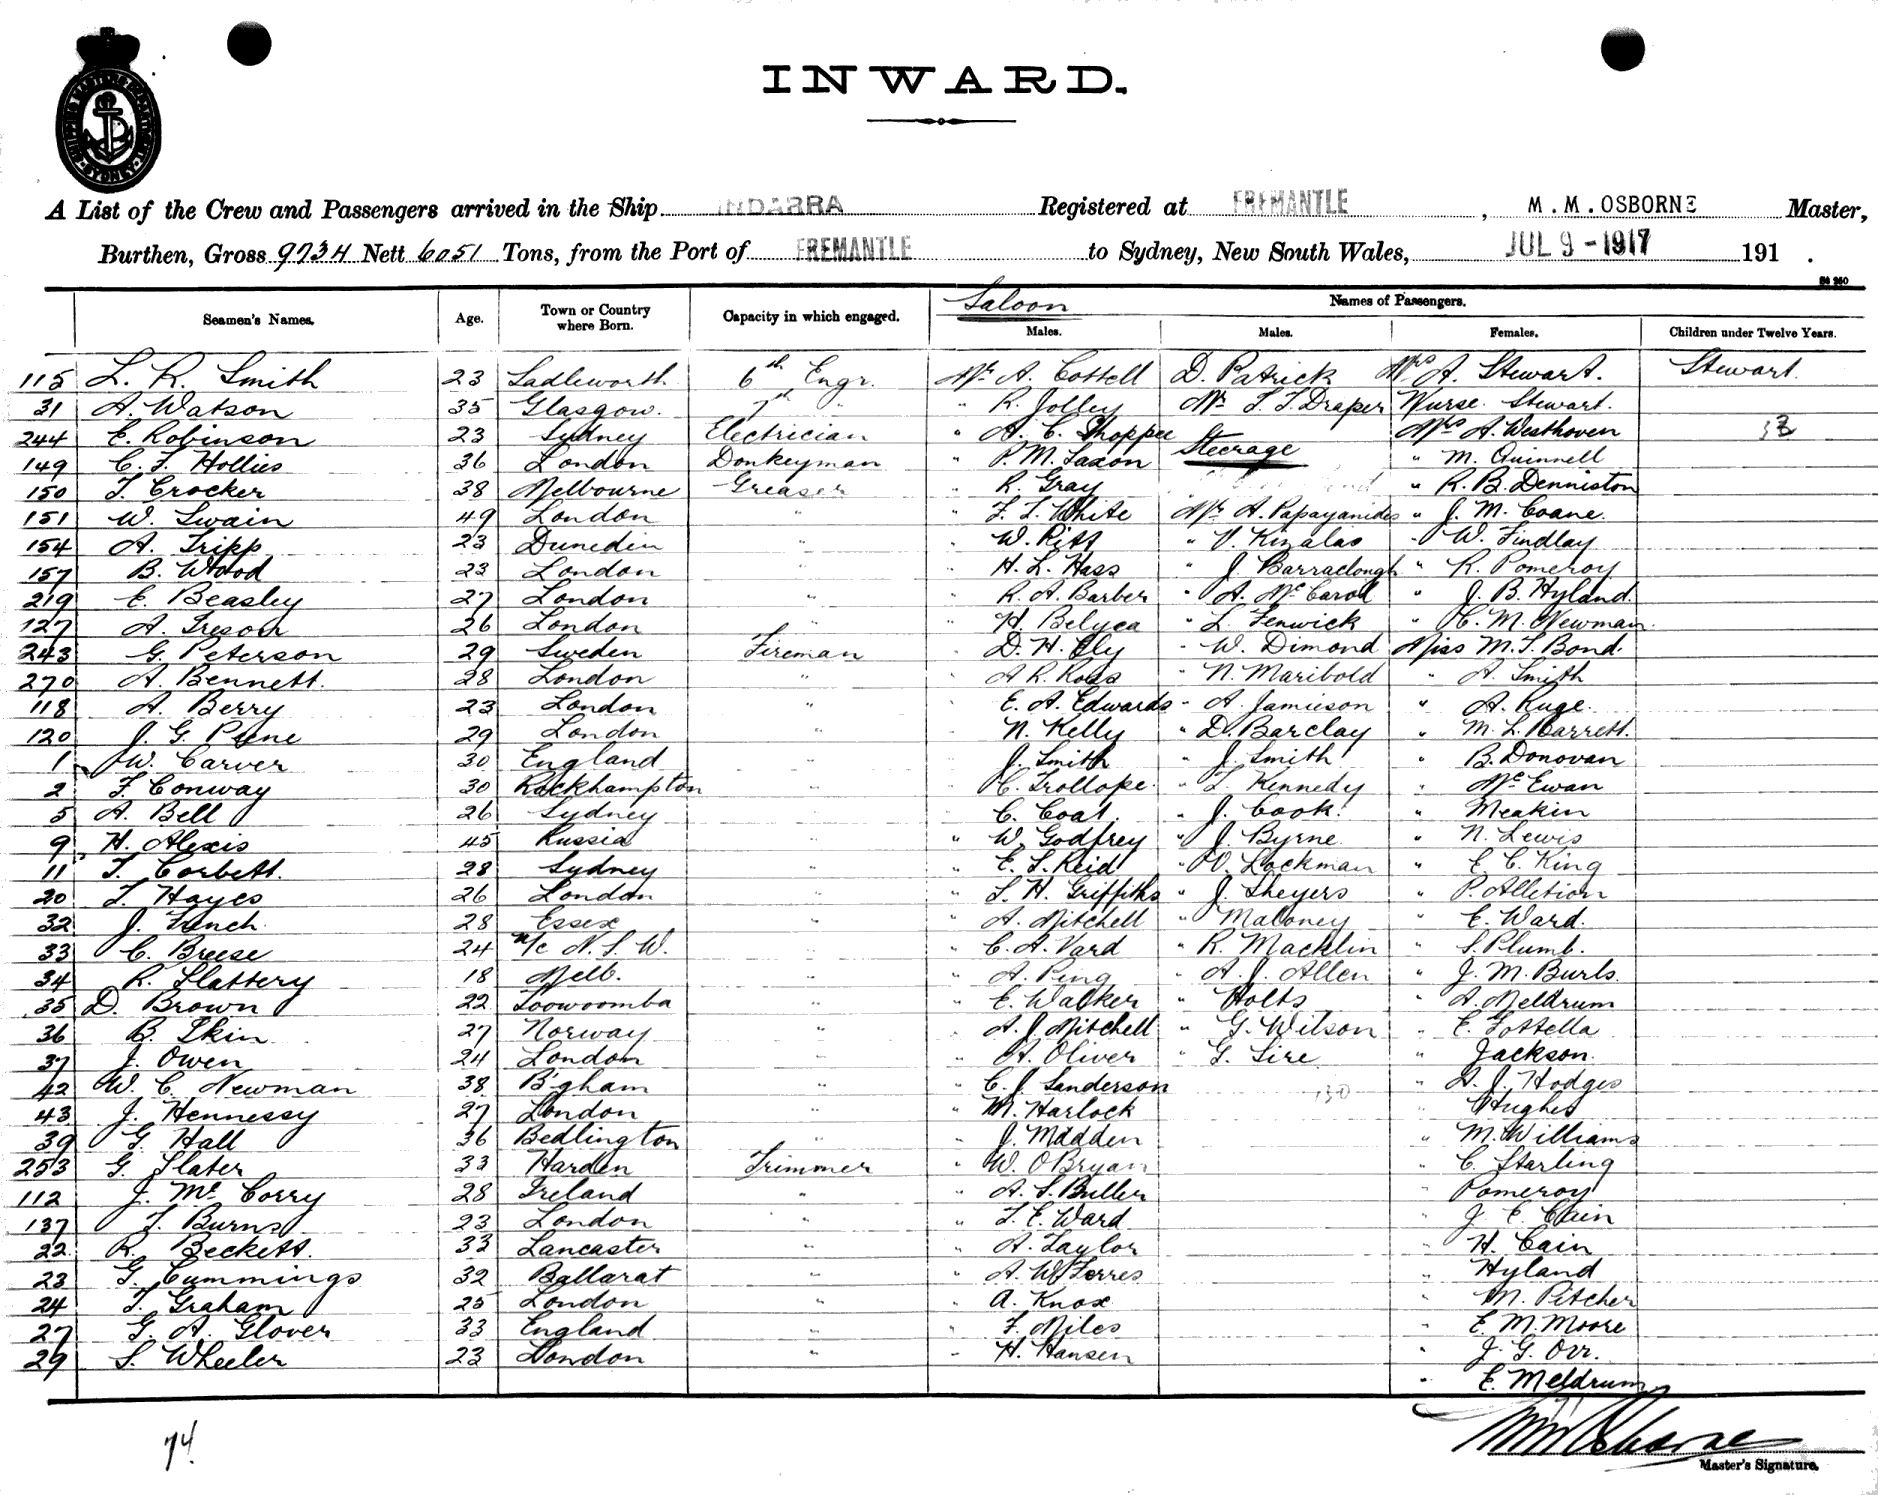 SHIPPING MASTERS DEPARTMENT SYDNEY
INWARD.
A List of the Crew and Passengers arrived in the Ship INDARRA Registered at FREMANTLE, M.M. OSBORNE Master,
Burthen, Gross 9734 Nett 6051 Tons, from the Port of FREMANTLE to Sydney, New South Wales, JUL 9 - 1917 191 .
Saloon Names of Passengers.
Seamen's Names. Age. Town or Country where Born. Capacity in which engaged. Males. Males. Females. Children under Twelve Years.
115 L. R. Smith 23 Sadleworth 6th Engr. Mr A. Cottell D. Patrick Mrs A. Stewart. Stewart.
31 A. Watson 35 Glasgow. 7th " " R. Jolley Mr T. T. Draper Nurse Stewart.
244 E. Robinson 23 Sydney Electrician " A. C. Shoppee Mrs A. Westhoven
149 C. F. Hollies 36 London Donkeyman " P. M. Saxon Steerage " M. Quinnell
150 T. Crocker 38 Melbourne Greaser " R. Gray " R. B. Denniston
151 W. Swain 49 London " " F. T. White Mr A. Papayanides " J. M. Coane.
154 A. Tripp 23 Dunedin " " W. Pitt " V. Kizalas " W. Findlay
157 B. Wood 23 London " " H. L. Hass " J. Barraclough " R. Pomeroy
219 E. Beasley 27 London " " R. A. Barber " A. McCarol " J. B. Hyland.
127 A. Tresour 26 London " " H. Belyea " L. Fenwick " C. M. Newman.
243 G. Peterson 29 Sweden Fireman " D. H. Ely " W. Dimond Miss M. T. Bond.
270 A. Bennett. 28 London " " A R. Ross " N. Maribold " A. Smith
118 A. Berry 23 London " " E. A. Edwards " A. Jamieson " A. Ruge.
120 J. G. Pane 29 London " " N. Kelly " D. Barclay " M. L. Barrett.
1 W. Carver 30 England " " J. Smith " J. Smith " B. Donovan
2 F. Conway 30 Rockhampton " " C. Trollope " T. Kennedy " McEwan
5 A. Bell 26 Sydney " " C. Coat " J. Cook. " Meakin
9 H. Alexis 45 Russia " " W. Godfrey " J. Byrne " N. Lewis
11 T. Corbett. 28 Sydney " " E. S. Reid " V. Lockman " E. C. King
20 T. Hayes 26 London " " S. H. Griffiths " J. Sheyers " P. Alletion
32 J. Finch 28 Essex " " A. Mitchell " Maloney " E. Ward.
33 C. Breese 24 N/c N. S. W. " " C. A. Vard " R. Macklin " S. Plumb.
34 R. Slattery 18 Melb. " " A. Ping " A. J. Allen " J. M. Burls.
35 D. Brown 22 Toowoomba " " E. Walker " Holts " A. Meldrum
36 B. Skin 27 Norway " " A. J. Mitchell " G. Wilson " E. Tottella
37 J. Owen 24 London " " A. Oliver " G. Sire " Jackson.
42 W. C. Newman 38 B'gham " " C. J. Sanderson " A. J. Hodges
43 J. Hennessy 27 London " " M. Harlock " Hughes
39 G. Hall 36 Bedlington " " J. Madden " M. Williams
253 G. Slater 33 Harden Trimmer " W. O'Bryan " C. Starling
112 J. McCorry 28 Ireland " " A. S. Buller " Pomeroy
137 T. Burns 23 London " " T. E. Ward " J. E. Cain
22 R. Beckett. 33 Lancaster " " A. Taylor " H. Cain
23 G. Cummings 32 Ballarat " " A. W. Torres " Hyland
24 T. Graham 25 London " " A. Knox " M. Pitcher
27 G. A. Glover 33 England " " F. Miles " E. M. Moore
29 S. Wheeler 23 London " " H. Hansen " J. G. Orr.
" E. Meldrum
74
MM Osborne
Master's Signature.